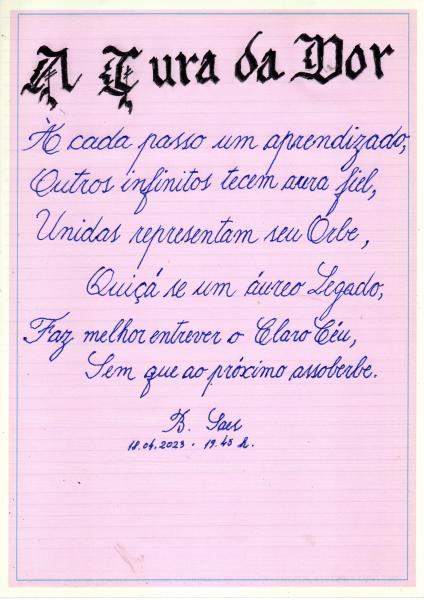 A Cura da Dor
À cada passo um aprendizado,
Outros infinitos tecem aura fiel,
Unidas representam seu Orbe,
Quiçá se um áureo Legado,
Faz melhor entrever o Claro Céu,
Sem que ao próximo assoberbe.
B. Saes
18.04.2023 . 19.45 h.